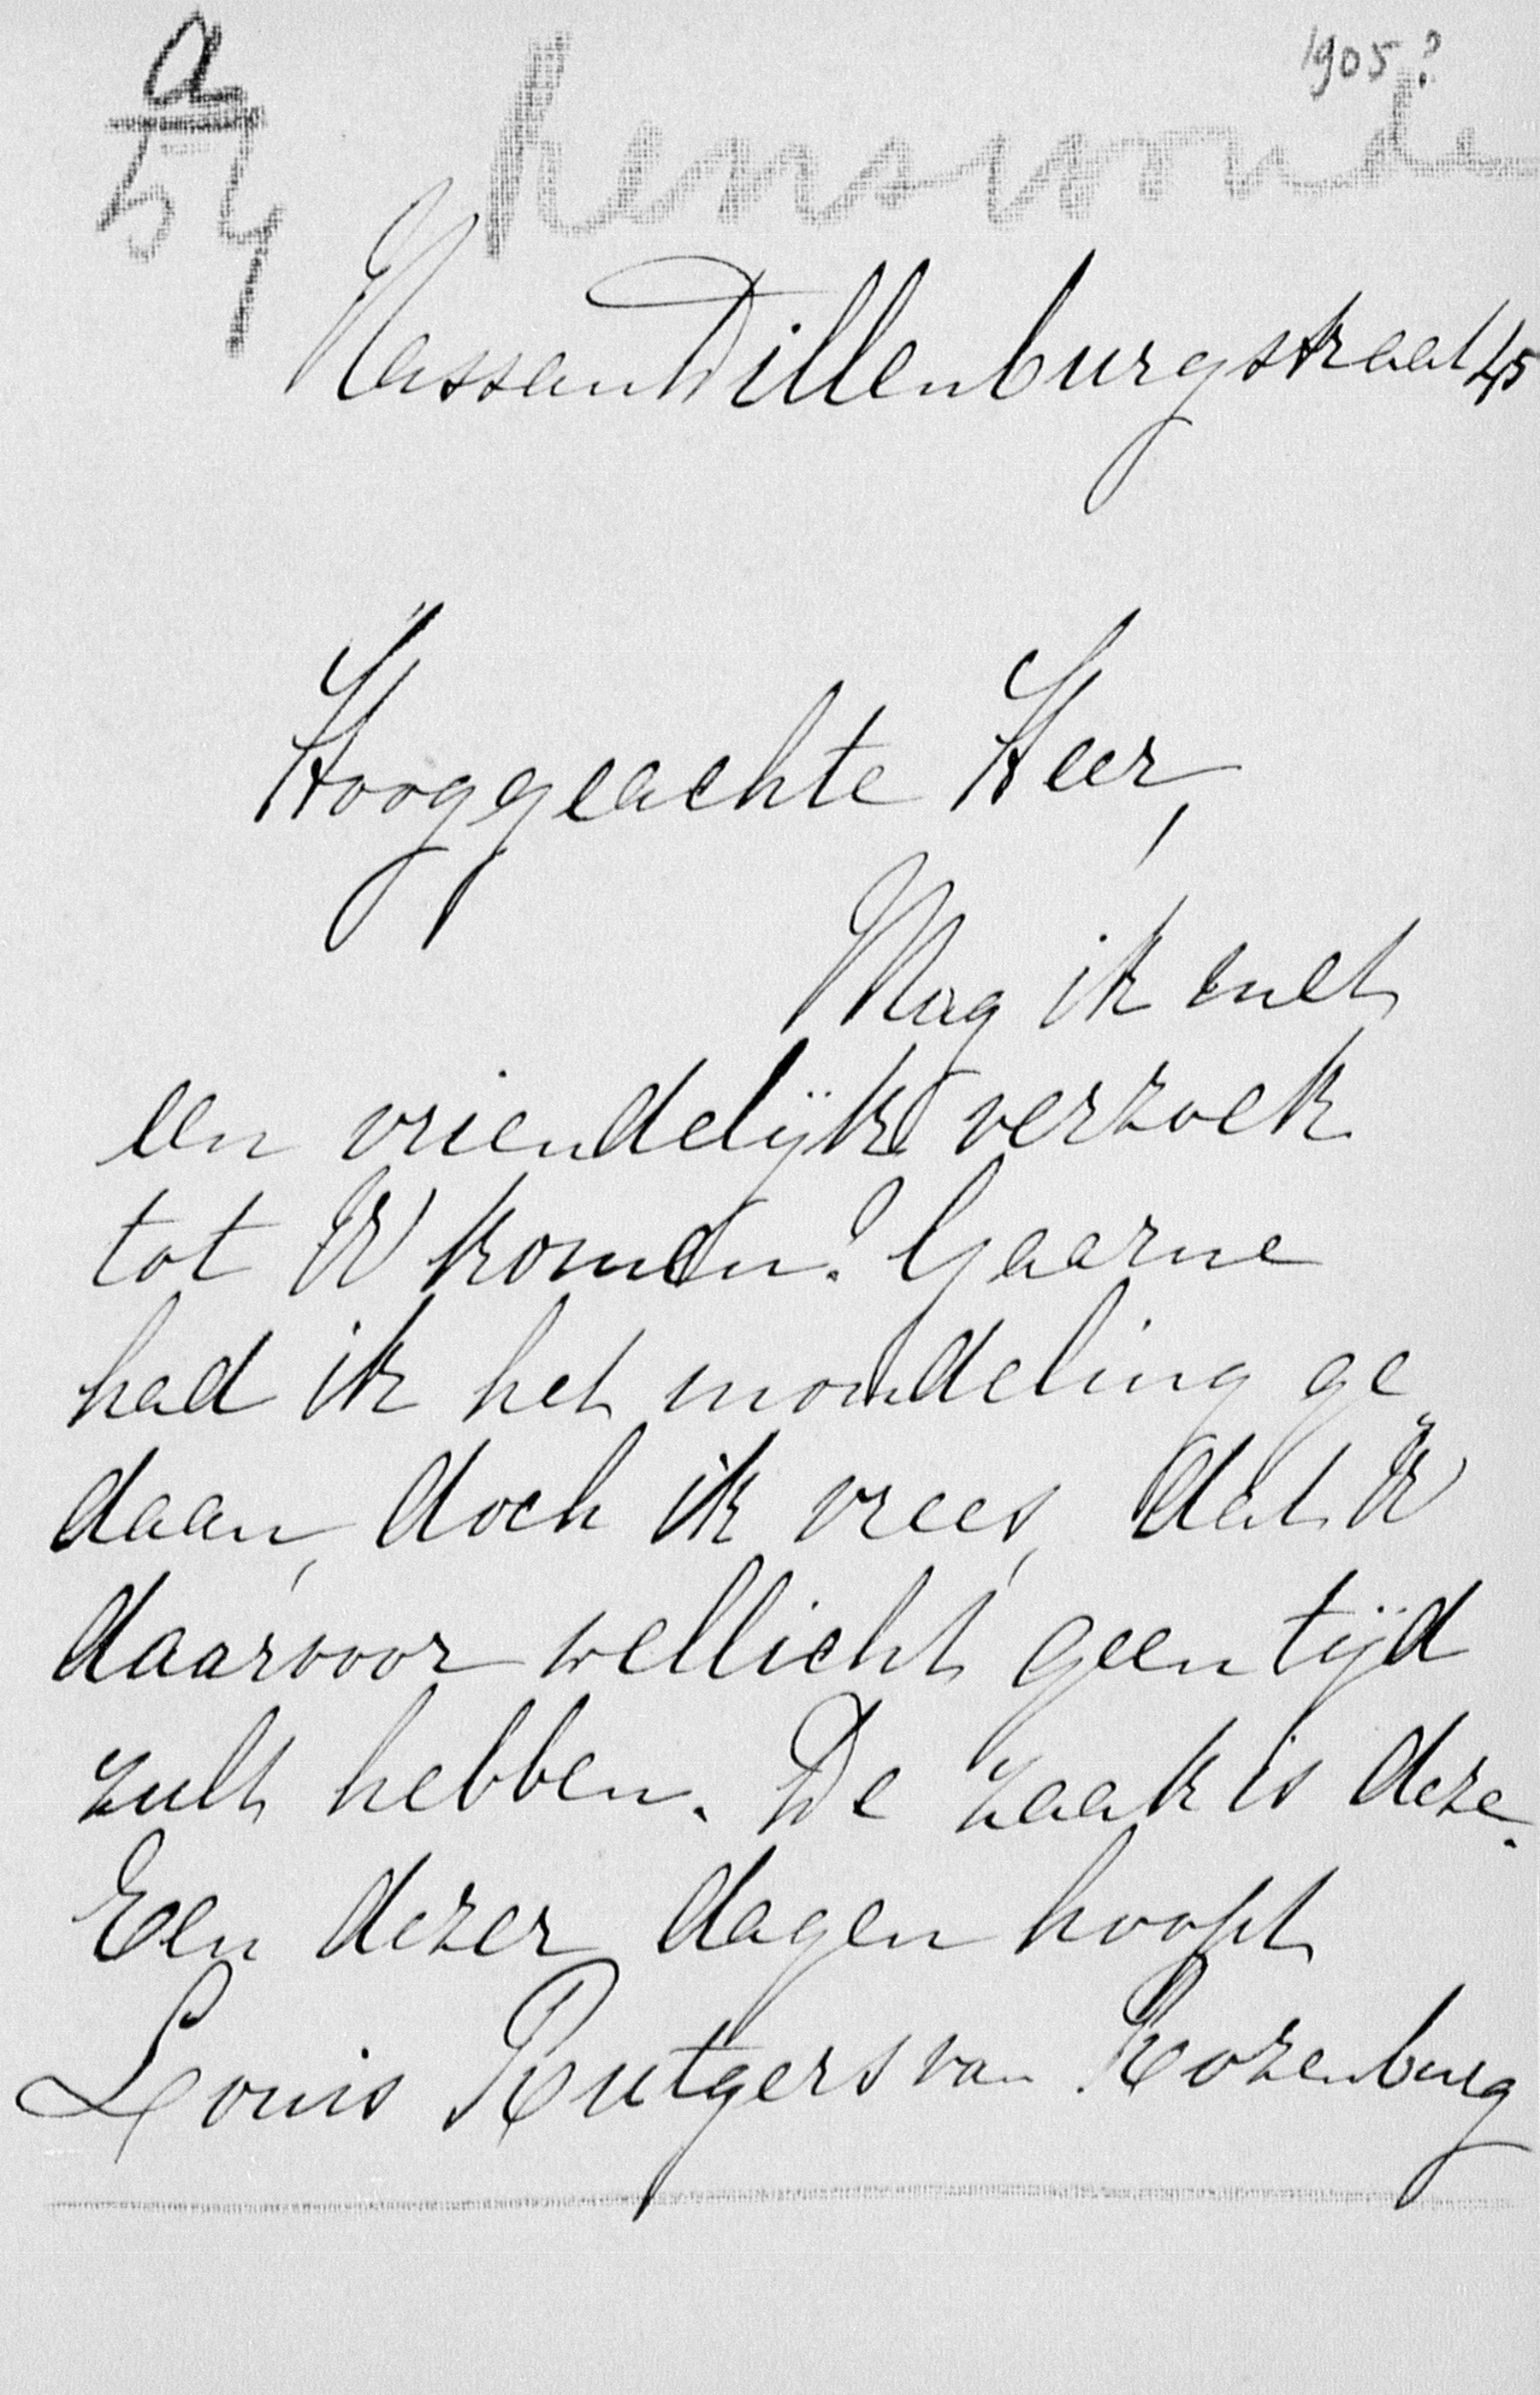 1905?
a
Renswoude
Nassau Dillenburgstraat 45
Hooggeachte Heer,
Mag ik met
een vriendelijk verzoek
tot U komen? Gaarne
had ik het mondeling ge
daan, doch ik vrees, dat U
daarvoor wellicht geen tijd
zult hebben. De zaak is deze.
Een dezer dagen hoopt
Louis Rutgers van Rozenburg